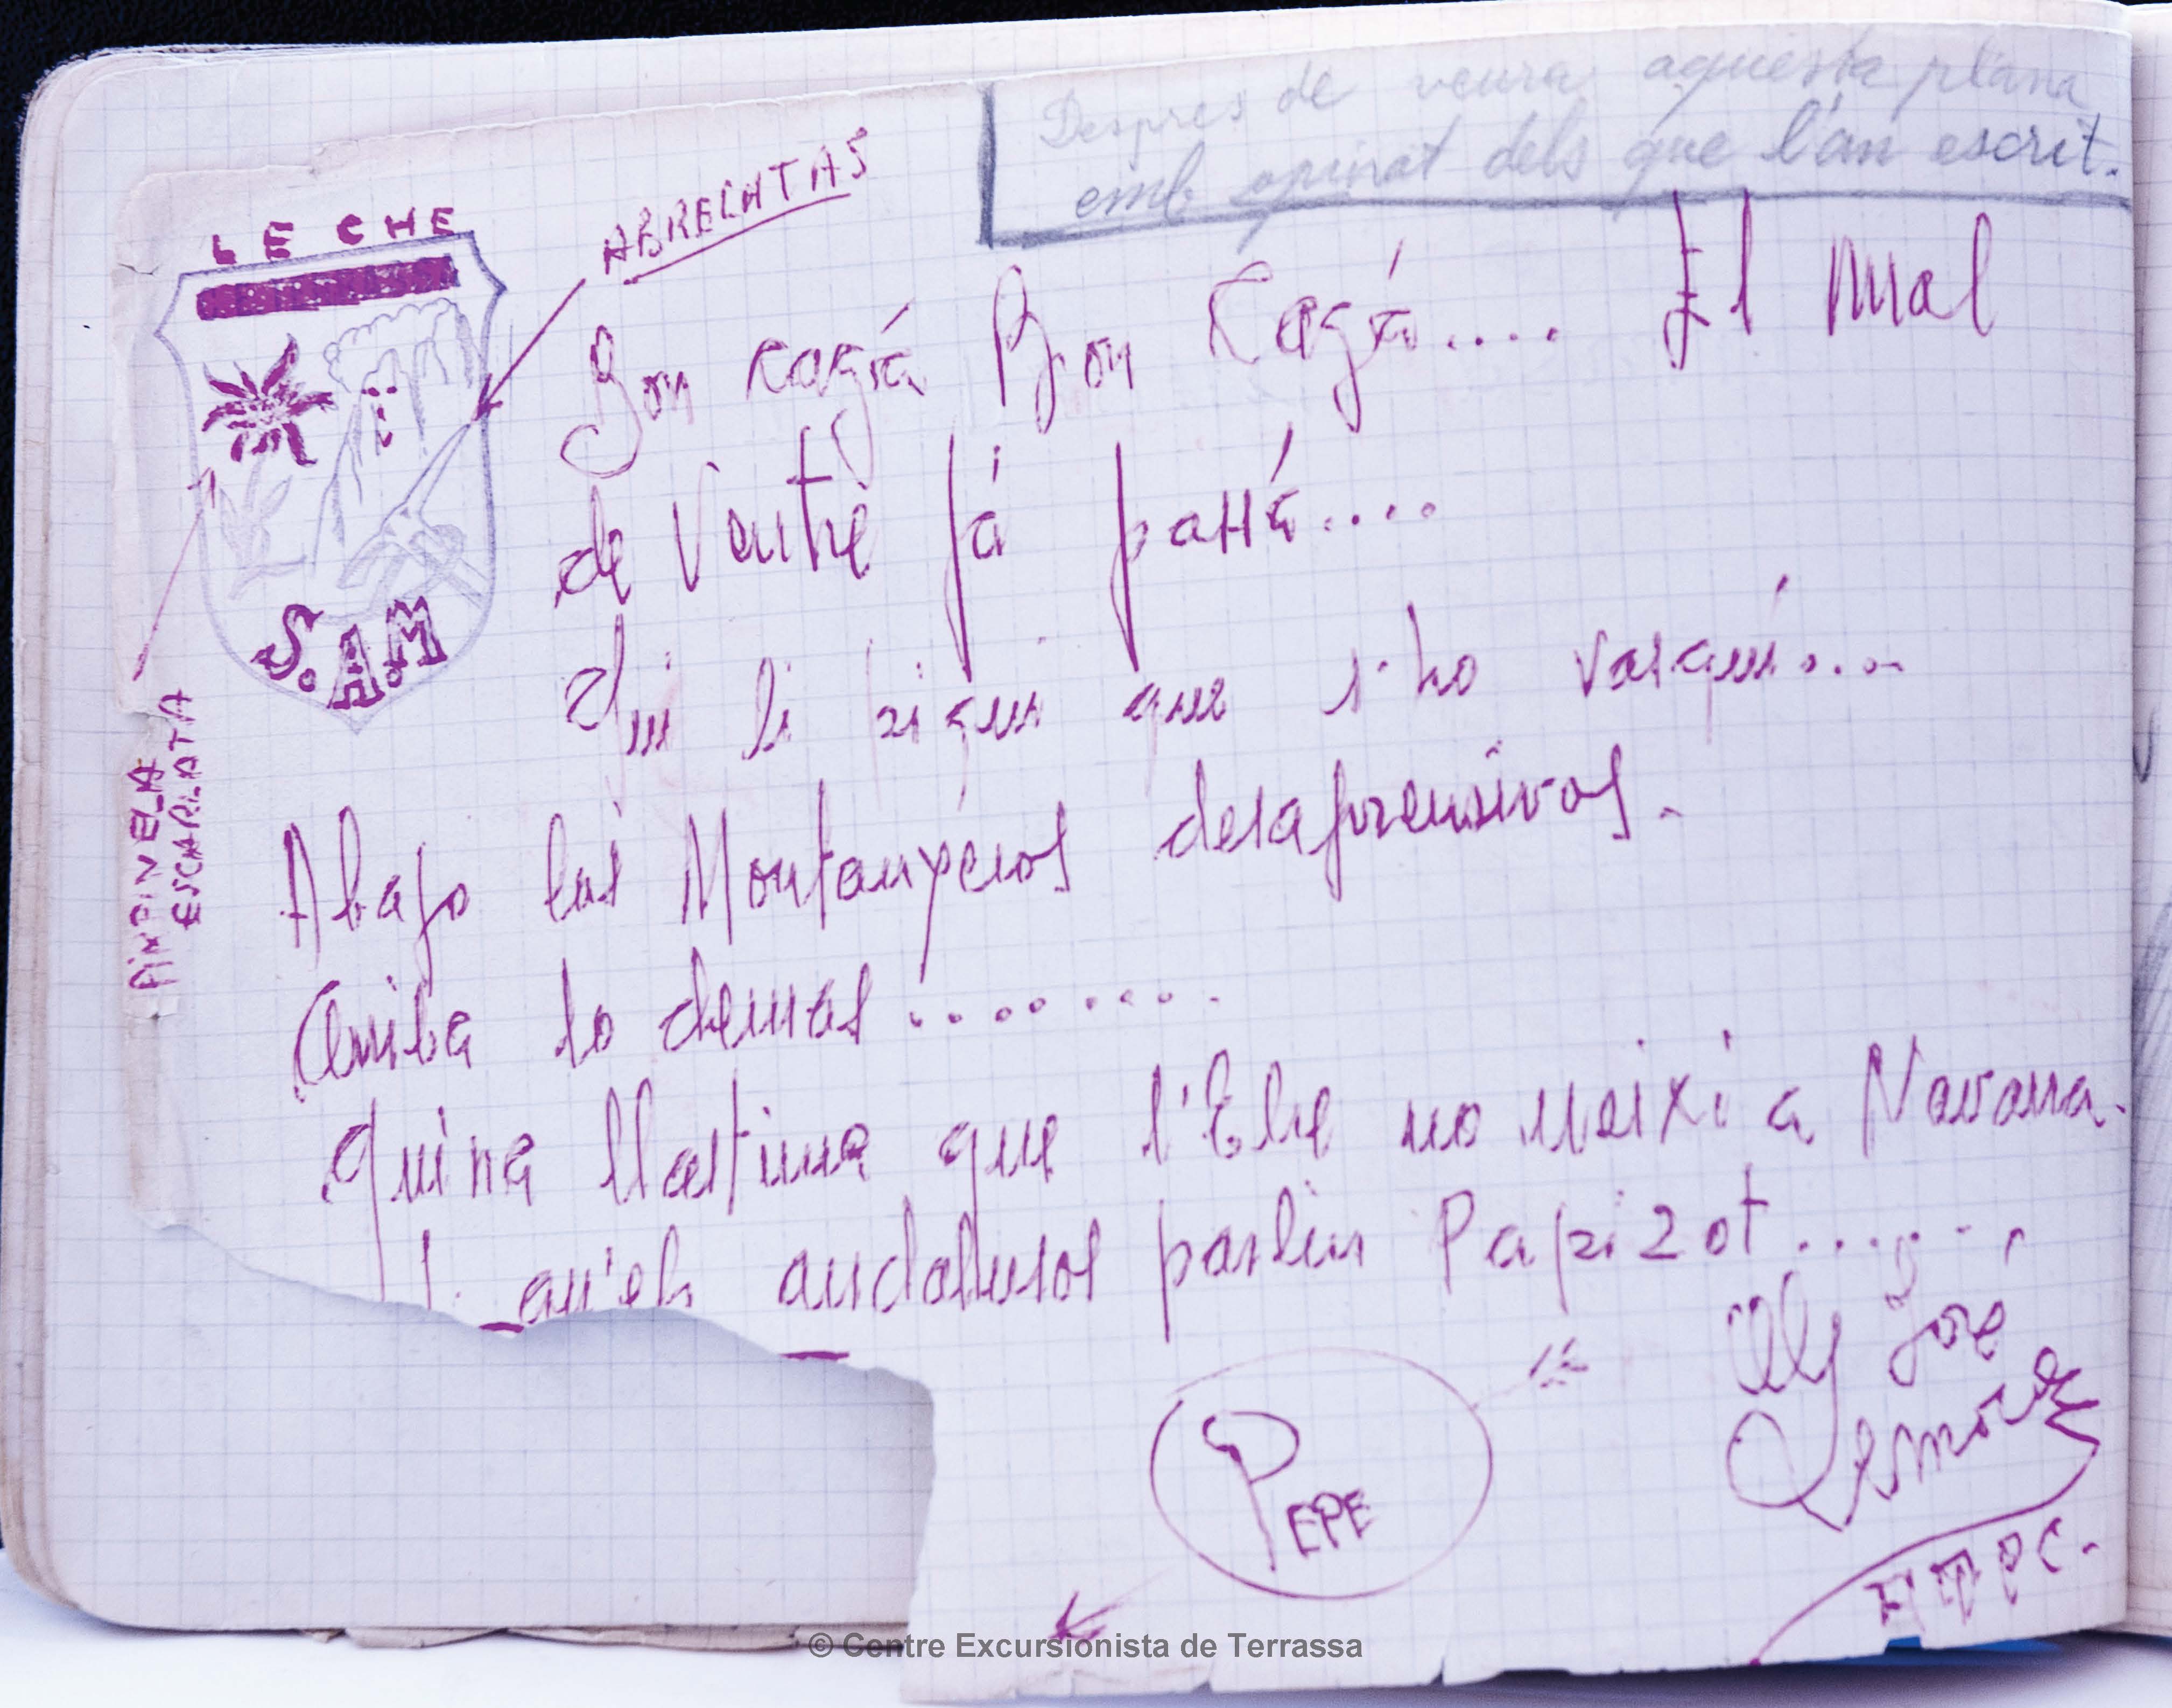 Despres de veura aquesta plana
emb opinat dels que l'an escrit.
LECHE
ABRECHTAS
S.A.M
PIMPINVELA
ESCARLATA
Bon cagá Bon Cagá.... El mal
de Ventre já passá....
qui li sigui que s'ho rasqui....
Abajo los Montanyeros desaprensivos.
Arriba lo demas ........
Quina llastima que l'Ebre no neixi a Navarra.
qu'els andalusos parlin Papizot......
Jose
PEPE
© Centre Excursionista de Terrassa